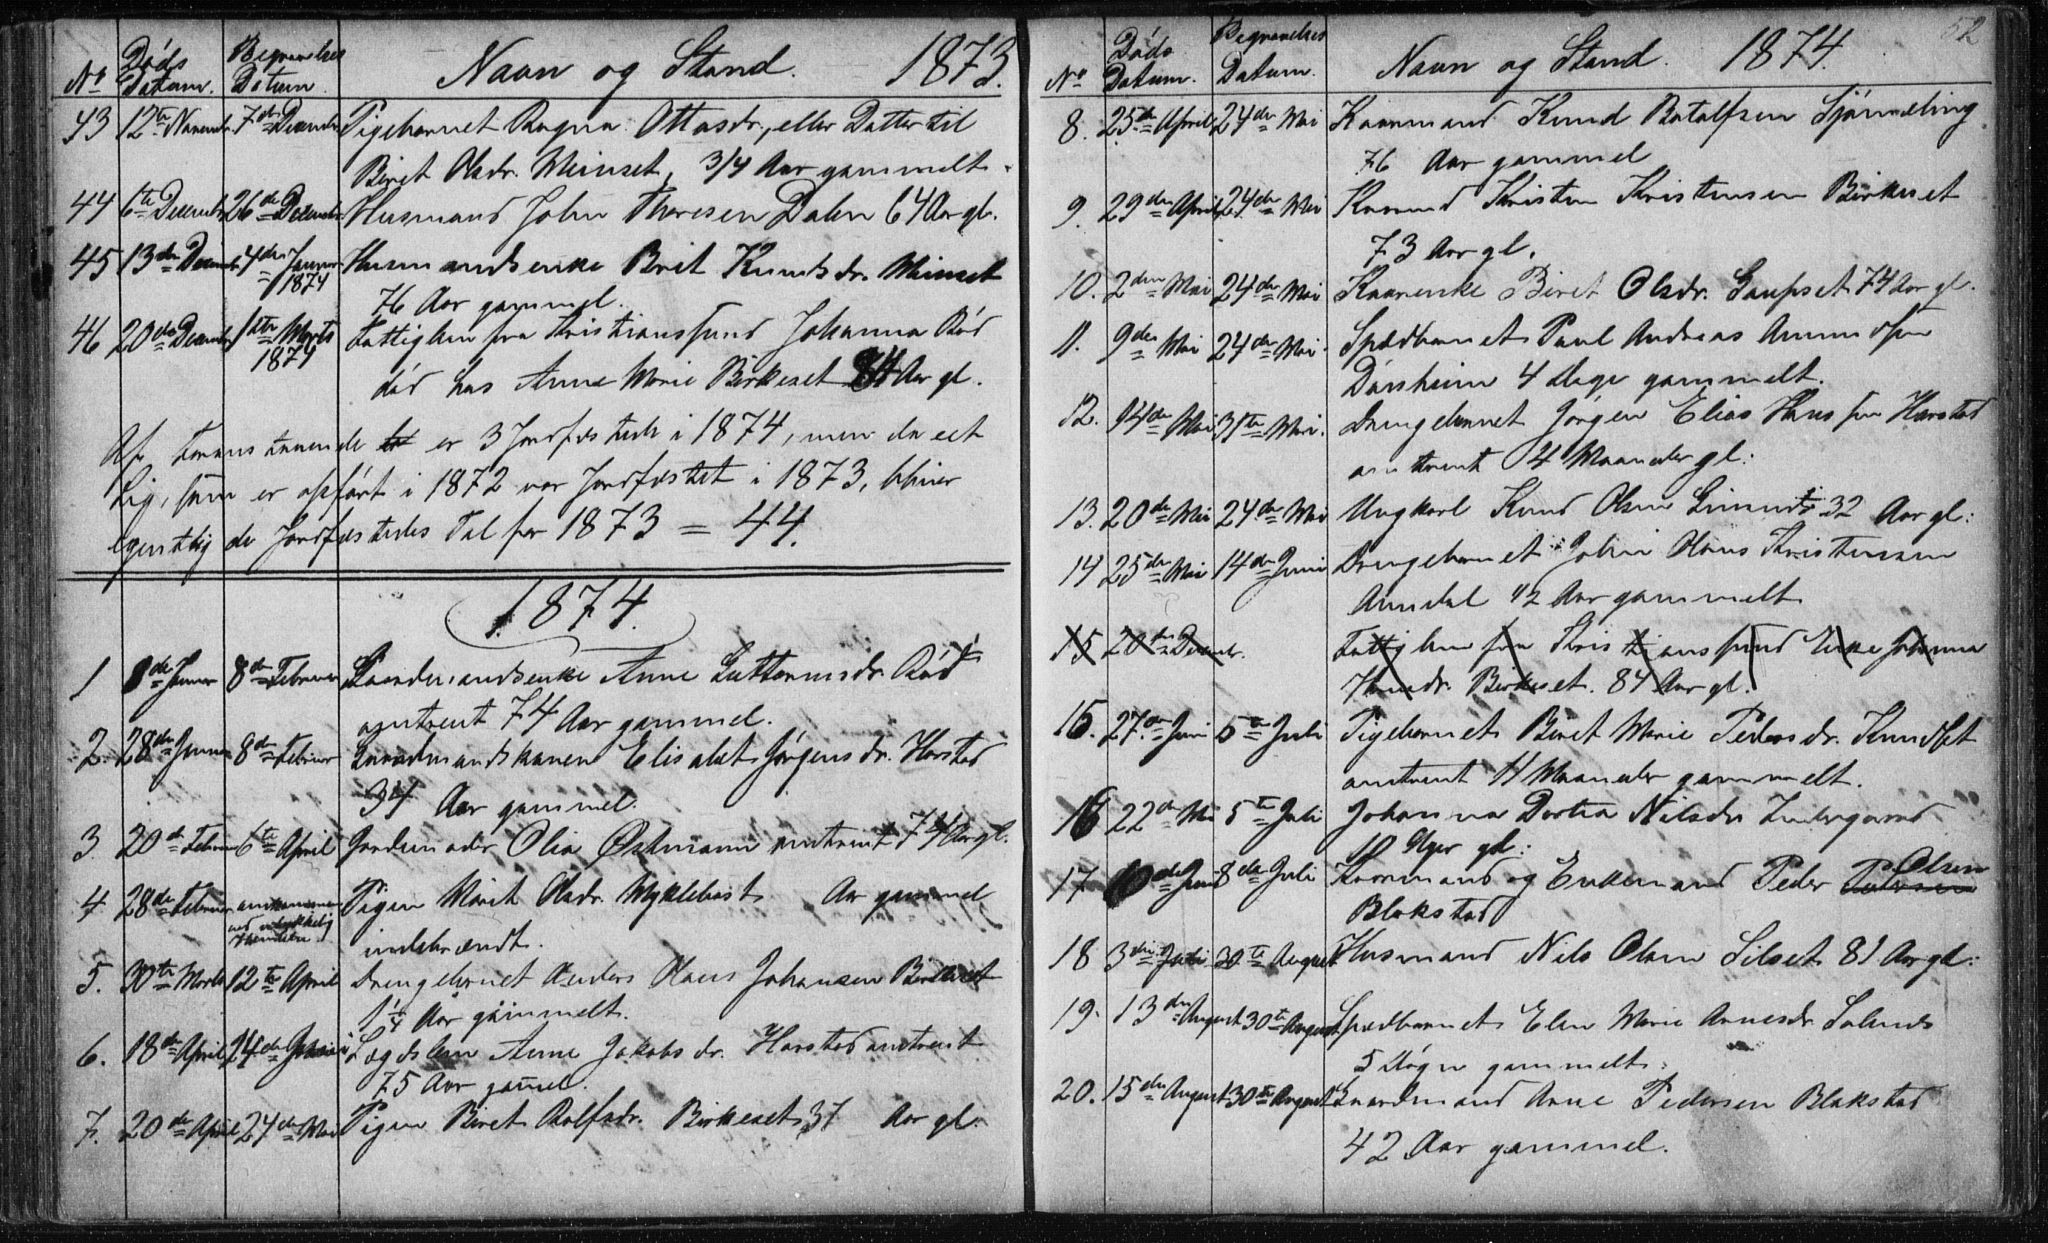 No Døds Datum. Begravelses Datum. Navn og Stand. 1873.
43 12te Novembr. 7de Decembr. Pigebarnet Ragna Ottosdr., eller Datter til
Beret Olsdr. Meisset, 3/4 Aar gammelt.
44 6te Decembr. 26de Decembr. Husmand John Thoresen Dalen 64 Aar gl.
45 13de Decembr. 4de Januar 1874 Husmandsenke Brit Knudsdr. Meisset
76 Aar gammel.
46 20de Decembr. 1ste Marts 1874 Fattiglem fra Kristianssund Johanna Rød
død hos Anne Marie Birkeset 84 Aar gl.
Af foranstaaende er 3 Jordfæstede i 1874, men da eet
Lig, som er opført i 1872 var Jordfæstet i 1873, bliver
egentlig de Jordfæstedes Tal for 1873 = 44.
1874.
1 8de Januar 8de Februar Gaardmandsenke Anne Guttormsdr. Rød
omtrent 74 Aar gammel.
2. 28de Januar 8de Februar Gaardmandskonen Elisabet Jørgensdr. Harstad
34 Aar gammel.
3. 20de Februar 6te April Jordmoder Olia Østmann omtrent 74 Aar gl.
4 28de Februar omkommen ved ulykkelig Hændelse. Pigen Marit Olsdr. Myklebost Aar gammel
indebrændt.
5. 30te Marts 12te April Drengebarnet Anders Hans Johansen Birkeset
1 1/4 Aar gammelt.
6. 18de April 24de Lægdslem Anne Jakobsdr. Harstad omtrent
75 Aar gamel.
7. 20de April 24de Mai Pigen Beret Rolfsdr. Birkeset 37 Aar gl.
52
No Døds Datum. Begravelses Datum. Navn og Stand. 1874.
8. 25de April 24de Mai Kaarmand Knud Botolfsen Sjømæling
76 Aar gammel
9. 29de April 24de Mai Kaarmd Kristen Kristensen Birkeset
73 Aar gl.
10. 2den Mai 24de Mai Kaarenke Beret Olsdr. Gaupset 74 Aar gl.
11. 9de Mai 24de Mai. Spædbarnet Paul Andreas Amundsen
Dørsheim 4 Dage gammelt.
12. 14de Mai 31te Mai. Drengebarnet Jørgen Elias Hansen Harstad
omtrent 4 Maaneder gl.
13. 20de Mai 24de Mai Ungkarl Knud Olsen 32 Aar gl.
14 25de Mai 14de Juni Drengebarnet John Hans Kristensen
Aandal 1/2 Aar gammelt
15 20de Decembr. Fattiglem fra Kristianssund Enke Johanna
Hansdr. Birkeset. 84 Aar gl.
15. 27de Juni 5te Juli Pigebarnet Beret Marie Pedersdr. Knudset
omtrent 11 Maaneder gammelt.
16 22de Mai 5te Juli Johanna Dortea Nilsdr.
10 Uger gl.
17 10de Juni 8de Juli Kaarmand og Enkemand Peder Pedersen Olsen
Blakstad
18 3die Juli 30te August Husmand Nils Olsen Silset 81 Aar gl.
19. 13de August 30te August Spædbarnet Elen Marie Arnesdr.
5 Døgn gammelt.
20. 15de August 30te August Gaardmand Arne Pedersen Blakstad
42 Aar gammel.